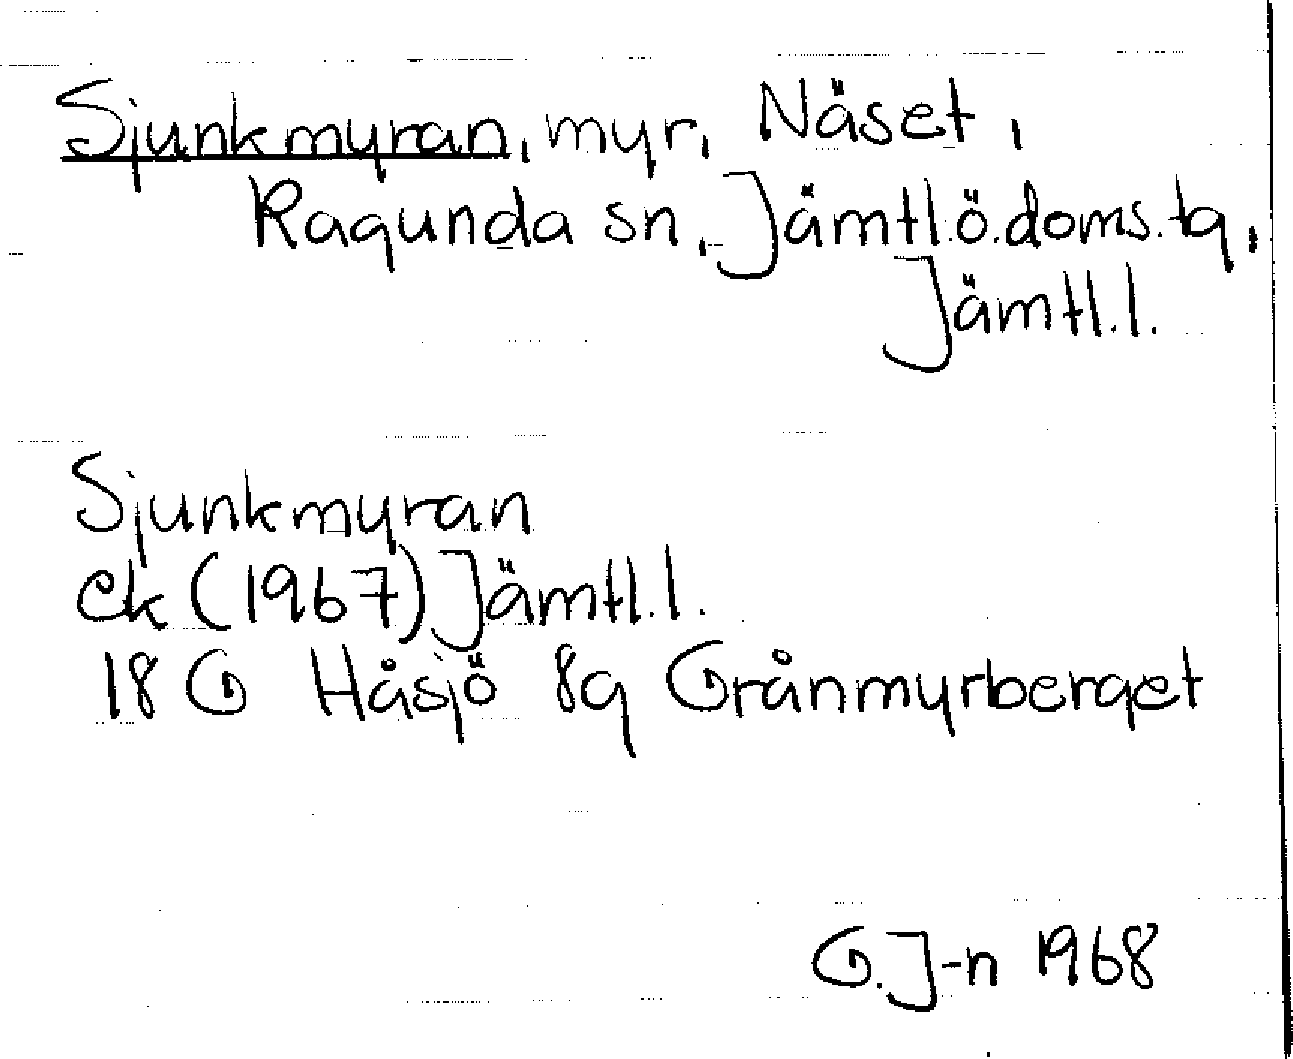 Sjunkmyran, myr, Näset,
Ragunda sn, Jämtl.ö.doms.tg,
Jämtl.l.
Sjunkmyran
ek (1967) Jämtl.l.
18 G Håsjö 8g Grånmyrberget
G.J-n 1968